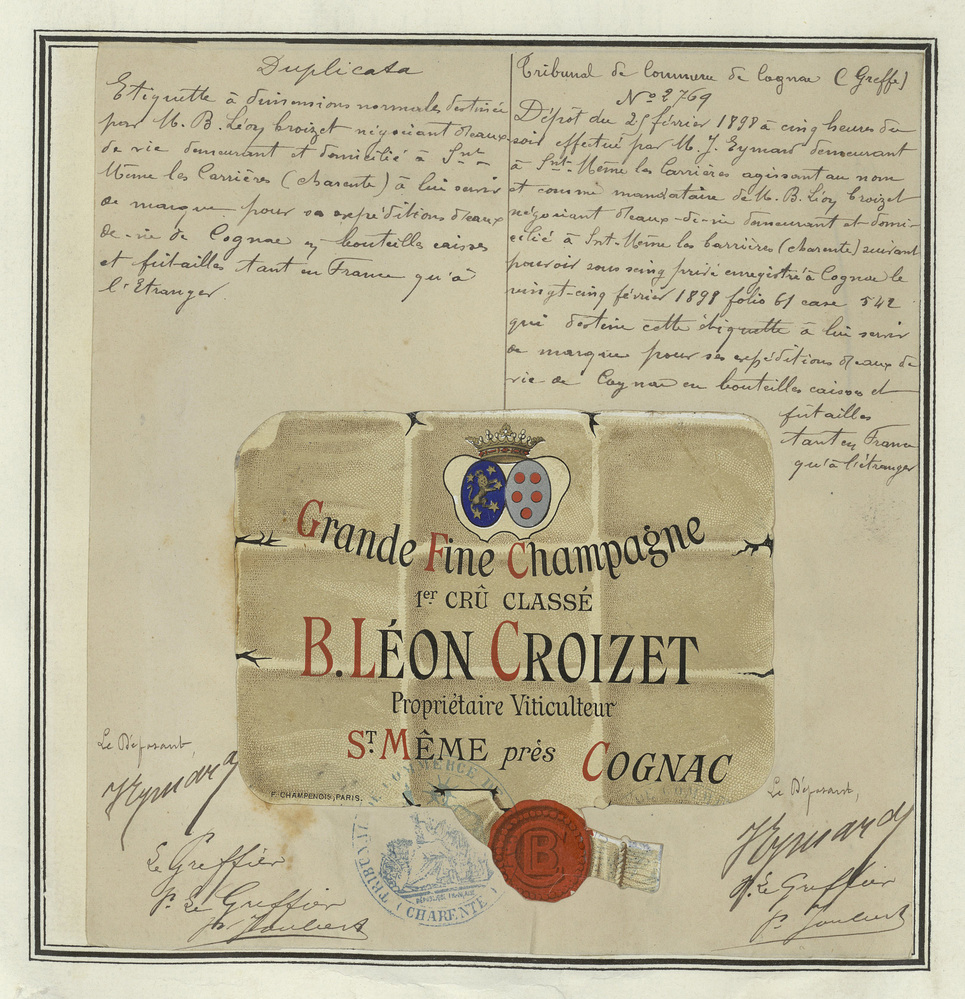 Duplicata
Etiquette à dimensions normales destinée
par M. B. Léon Croizet négociant d'eaux
de vie demeurant et domicilié à Snt
Même les Carrières (Charente) à lui servir
de marque pour ses expéditions d'eaux
de-vie de Cognac en bouteilles caisses
et futailles tant en France qu'à
l'Etranger.
Tribunal de Commerce de Cognac (Greffe)
No 2769
Dépôt du 25 février 1898 à cinq heures du
soir effectué par M. J. Eymard demeurant
à Snt-Même les Carrières agissant au nom
et comme mandataire de M. B. Léon Croizet
négociant d'eaux-de-vie demeurant et domi-
cilié à Snt-Même les Carrières (Charente) suivant
pouvoir sous seing privé enregistré à Cognac le
vingt-cinq février 1898 folio 61 case 542
qui destine cette étiquette à lui servir
de marque pour ses expéditions d'eaux de
vie de Cognac en bouteilles caisses et
futailles
tant en France
qu'à l'étranger
Grande Fine Champagne
1er CRÛ CLASSÉ
B. LÉON CROIZET
Propriétaire Viticulteur
ST MÊME près COGNAC
F. CHAMPENOIS, PARIS.
B
TRIBUNAL DE COMMERCE
(CHARENTE)
Le Déposant,
Eymard
Le Greffier
Pr Le Greffier
Le Déposant,
Eymard
Pr Le Greffier